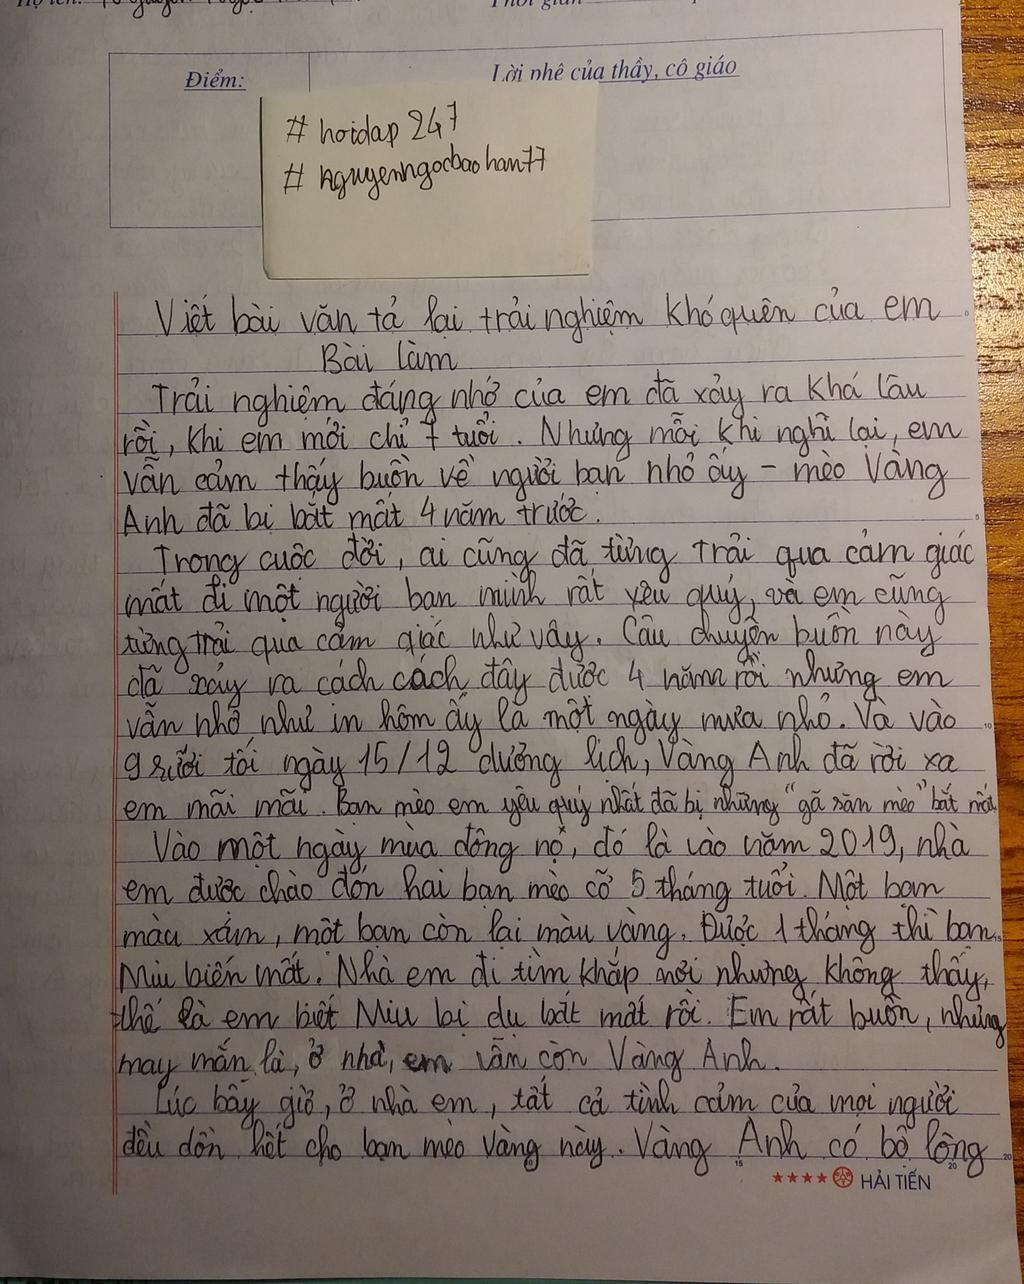 Họ tên:
Thời gian
Điểm:
Lời phê của thầy, cô giáo
# hoidap 247
# nguyenngocbaohan77
Viết bài văn tả lại trải nghiệm khó quên của em
Bài làm
Trải nghiệm đáng nhớ của em đã xảy ra khá lâu
rồi, khi em mới chỉ 7 tuổi. Nhưng mỗi khi nghĩ lại, em
vẫn cảm thấy buồn về người bạn nhỏ ấy - mèo Vàng
Anh đã bị bắt mất 4 năm trước.
Trong cuộc đời, ai cũng đã từng trải qua cảm giác
mất đi một người bạn mình rất yêu quý, và em cũng
từng trải qua cảm giác như vậy. Câu chuyện buồn này
đã xảy ra cách cách đây được 4 năm rồi nhưng em
vẫn nhớ như in hôm ấy là một ngày mưa nhỏ. Và vào
9 rưỡi tối ngày 15/12 dương lịch, Vàng Anh đã rời xa
em mãi mãi. Bạn mèo em yêu quý nhất đã bị những "gã săn mèo" bắt mất
Vào một ngày mùa đông nọ, đó là vào năm 2019, nhà
em được chào đón hai bạn mèo cỡ 5 tháng tuổi. Một bạn
màu xám, một bạn còn lại màu vàng. Được 1 tháng thì bạn
Miu biến mất. Nhà em đi tìm khắp nơi nhưng không thấy,
thế là em biết Miu bị dụ bắt mất rồi. Em rất buồn, nhưng
may mắn là, ở nhà, em vẫn còn Vàng Anh.
Lúc bấy giờ, ở nhà em, tất cả tình cảm của mọi người
đều dồn hết cho bạn mèo vàng này. Vàng Anh có bộ lông
HẢI TIẾN